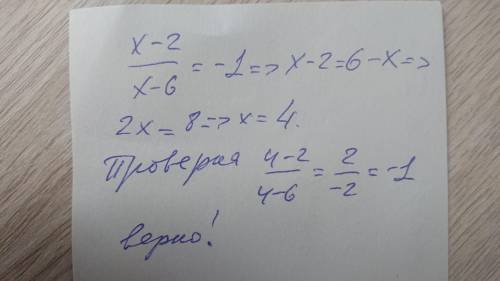 x-2/x-6 = -1 => x-2=6-x =>
2x = 8 => x = 4.
Проверка 4-2/4-6 = 2/-2 = -1
верно!